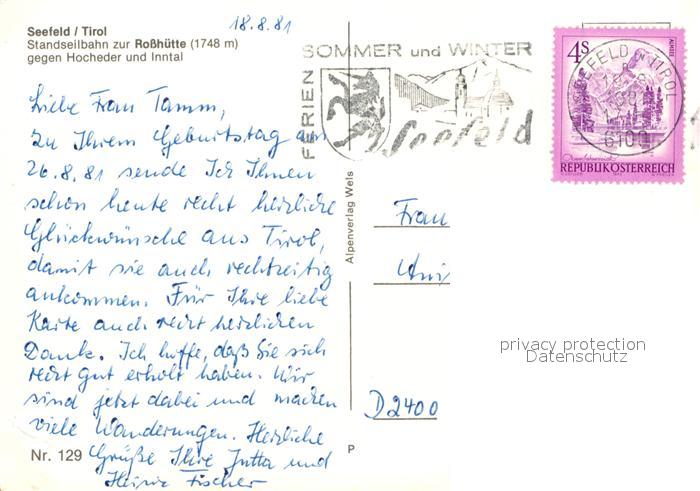 18.8.81
Seefeld / Tirol
Standseilbahn zur Roßhütte (1748 m)
gegen Hocheder und Inntal
FERIEN
SOMMER und WINTER
Seefeld
4S
SEEFELD IN TIROL
6100
REPUBLIK ÖSTERREICH
Liebe Frau Tamm,
zu Ihrem Geburtstag am
26.8.81 sende Ich Ihnen
schon heute recht herzliche
Glückwünsche aus Tirol,
damit sie auch rechtzeitig
ankommen. Für Ihre liebe
Karte auch recht herzlichen
Dank. Ich hoffe, daß Sie sich
recht gut erholt haben. Wir
sind jetzt dabei und machen
viele Wanderungen. Herzliche
Grüße Ihre Jutta und
Heinz Fischer
Nr. 129
Alpenverlag Weis
P
Frau
D 2400
privacy protection
Datenschutz